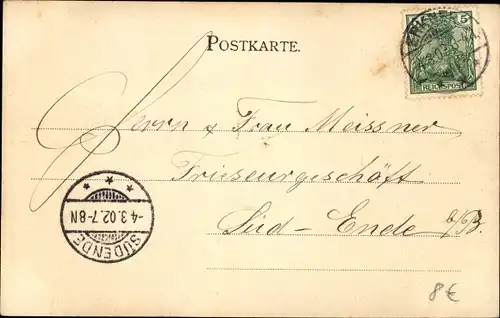 POSTKARTE.
5
REICHSPOST
Herrn & Frau Meissner
Friseurgeschäft
Süd-Ende b/B.
-4.3.02.7-8N
SÜDENDE
8€